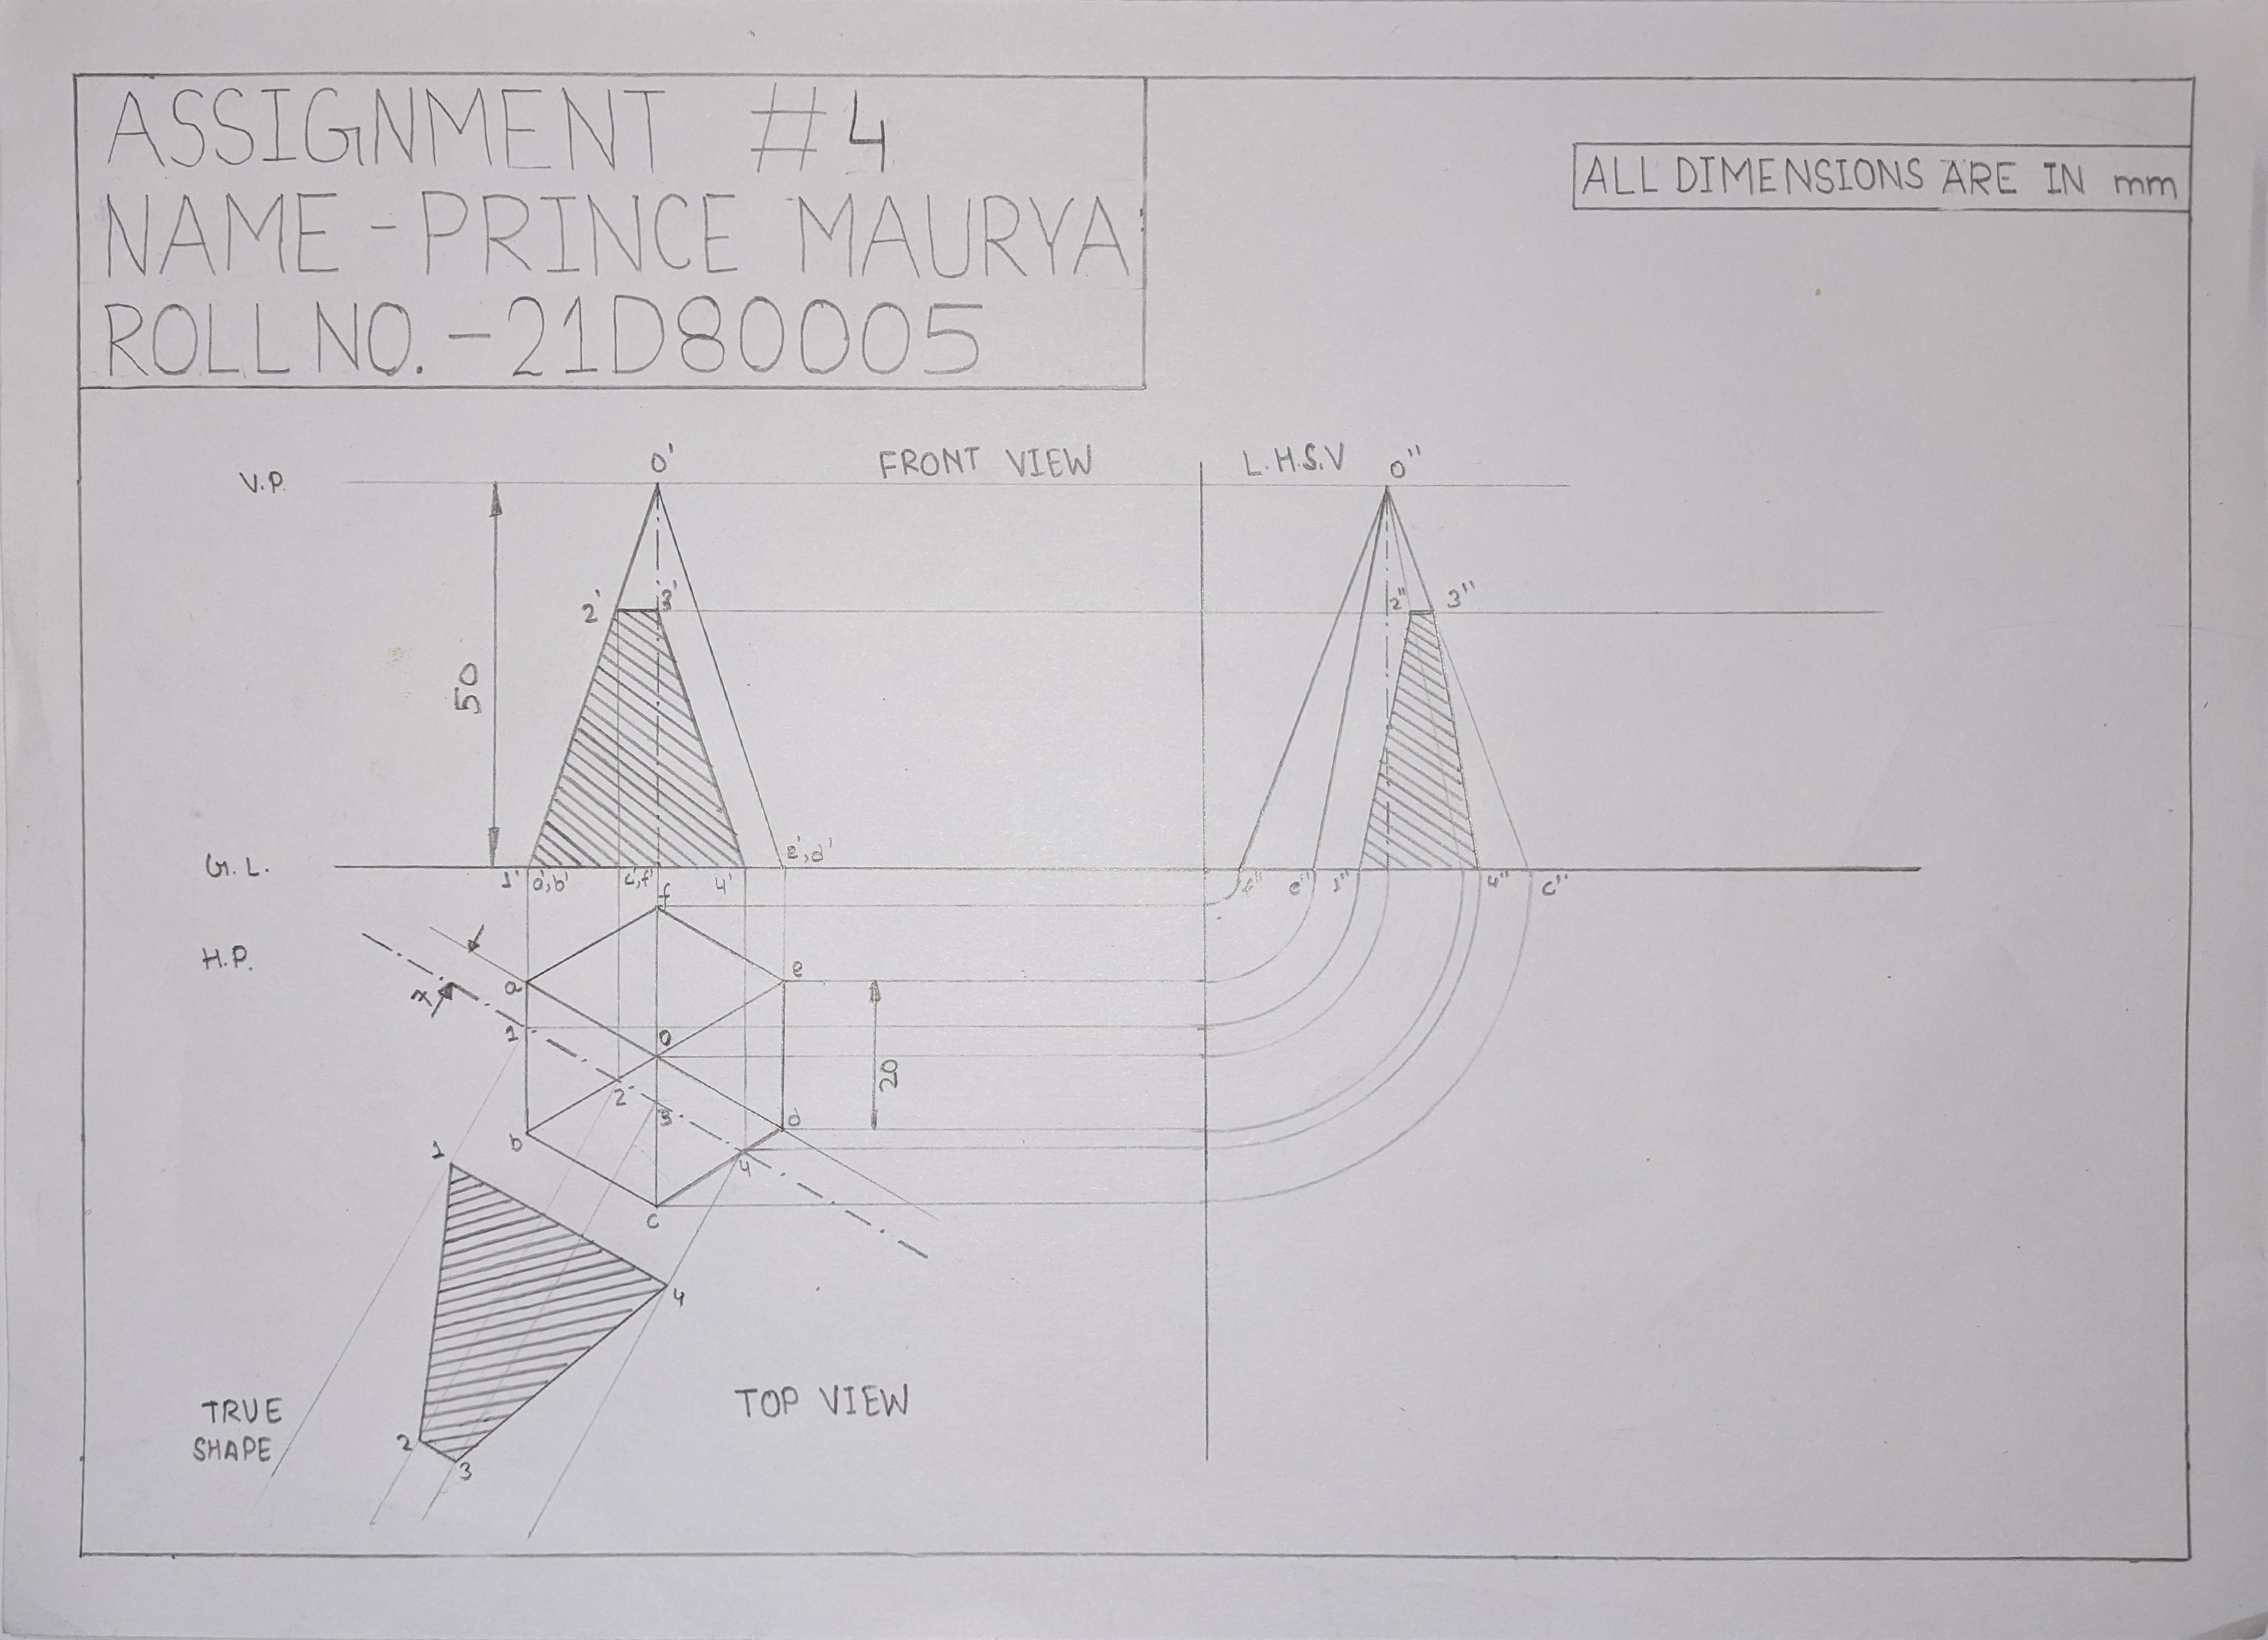 ASSIGNMENT #4
NAME - PRINCE MAURYA
ROLL NO. - 21D80005
ALL DIMENSIONS ARE IN mm
V.P.
O'
FRONT VIEW
L.H.S.V
O"
2'
3'
2"
3"
50
G.L.
1'
a',b'
c',f'
4'
e',d'
f"
e"
1"
4"
c"
f
H.P.
a
e
7
1
O
20
2
3
d
b
4
c
1
4
TRUE
SHAPE
TOP VIEW
2
3